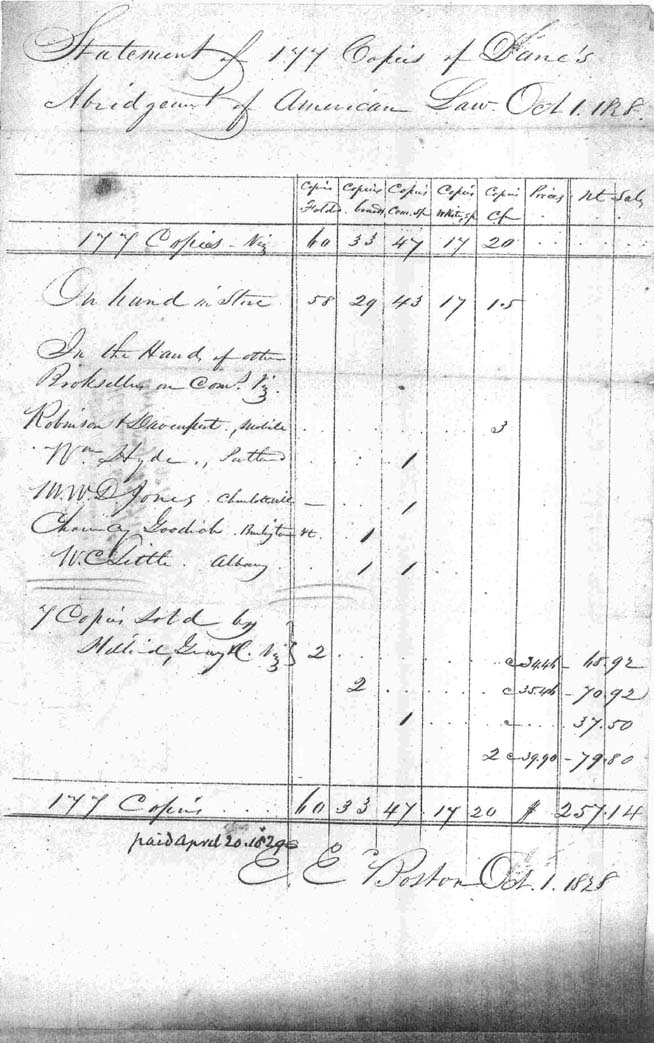 Statement of 177 Copies of Dane's
Abridgement of American Law. Oct 1. 1828.
Copies Copies Copies Copies Copies Prices Nt Sales
Folded. boards, Com. Sp White Sp Cf
177 Copies - Viz 60 33 47 17 20
On hand in Store 58 29 43 17 15
In the Hands of other
Booksellers on Com.n Viz.
Robinson & Davenport, Mobile 3
Wm Hyde., Portland 1
M.W.D. Jones. Charlottesville — 1
Chauncey Goodrich. Burlington Vt. 1
W.C. Little. Albany 1 1
7 Copies Sold by
Hilliard, Gray & C. Viz } 2 c 34.46 - 68.92
2 c 35.46 - 70.92
1 c - 37.50
2 c 39.90 - 79.80
177 Copies 60 33 47 17 20 $ 257.14
paid April 20. 1829
E. E. Boston Oct. 1. 1828